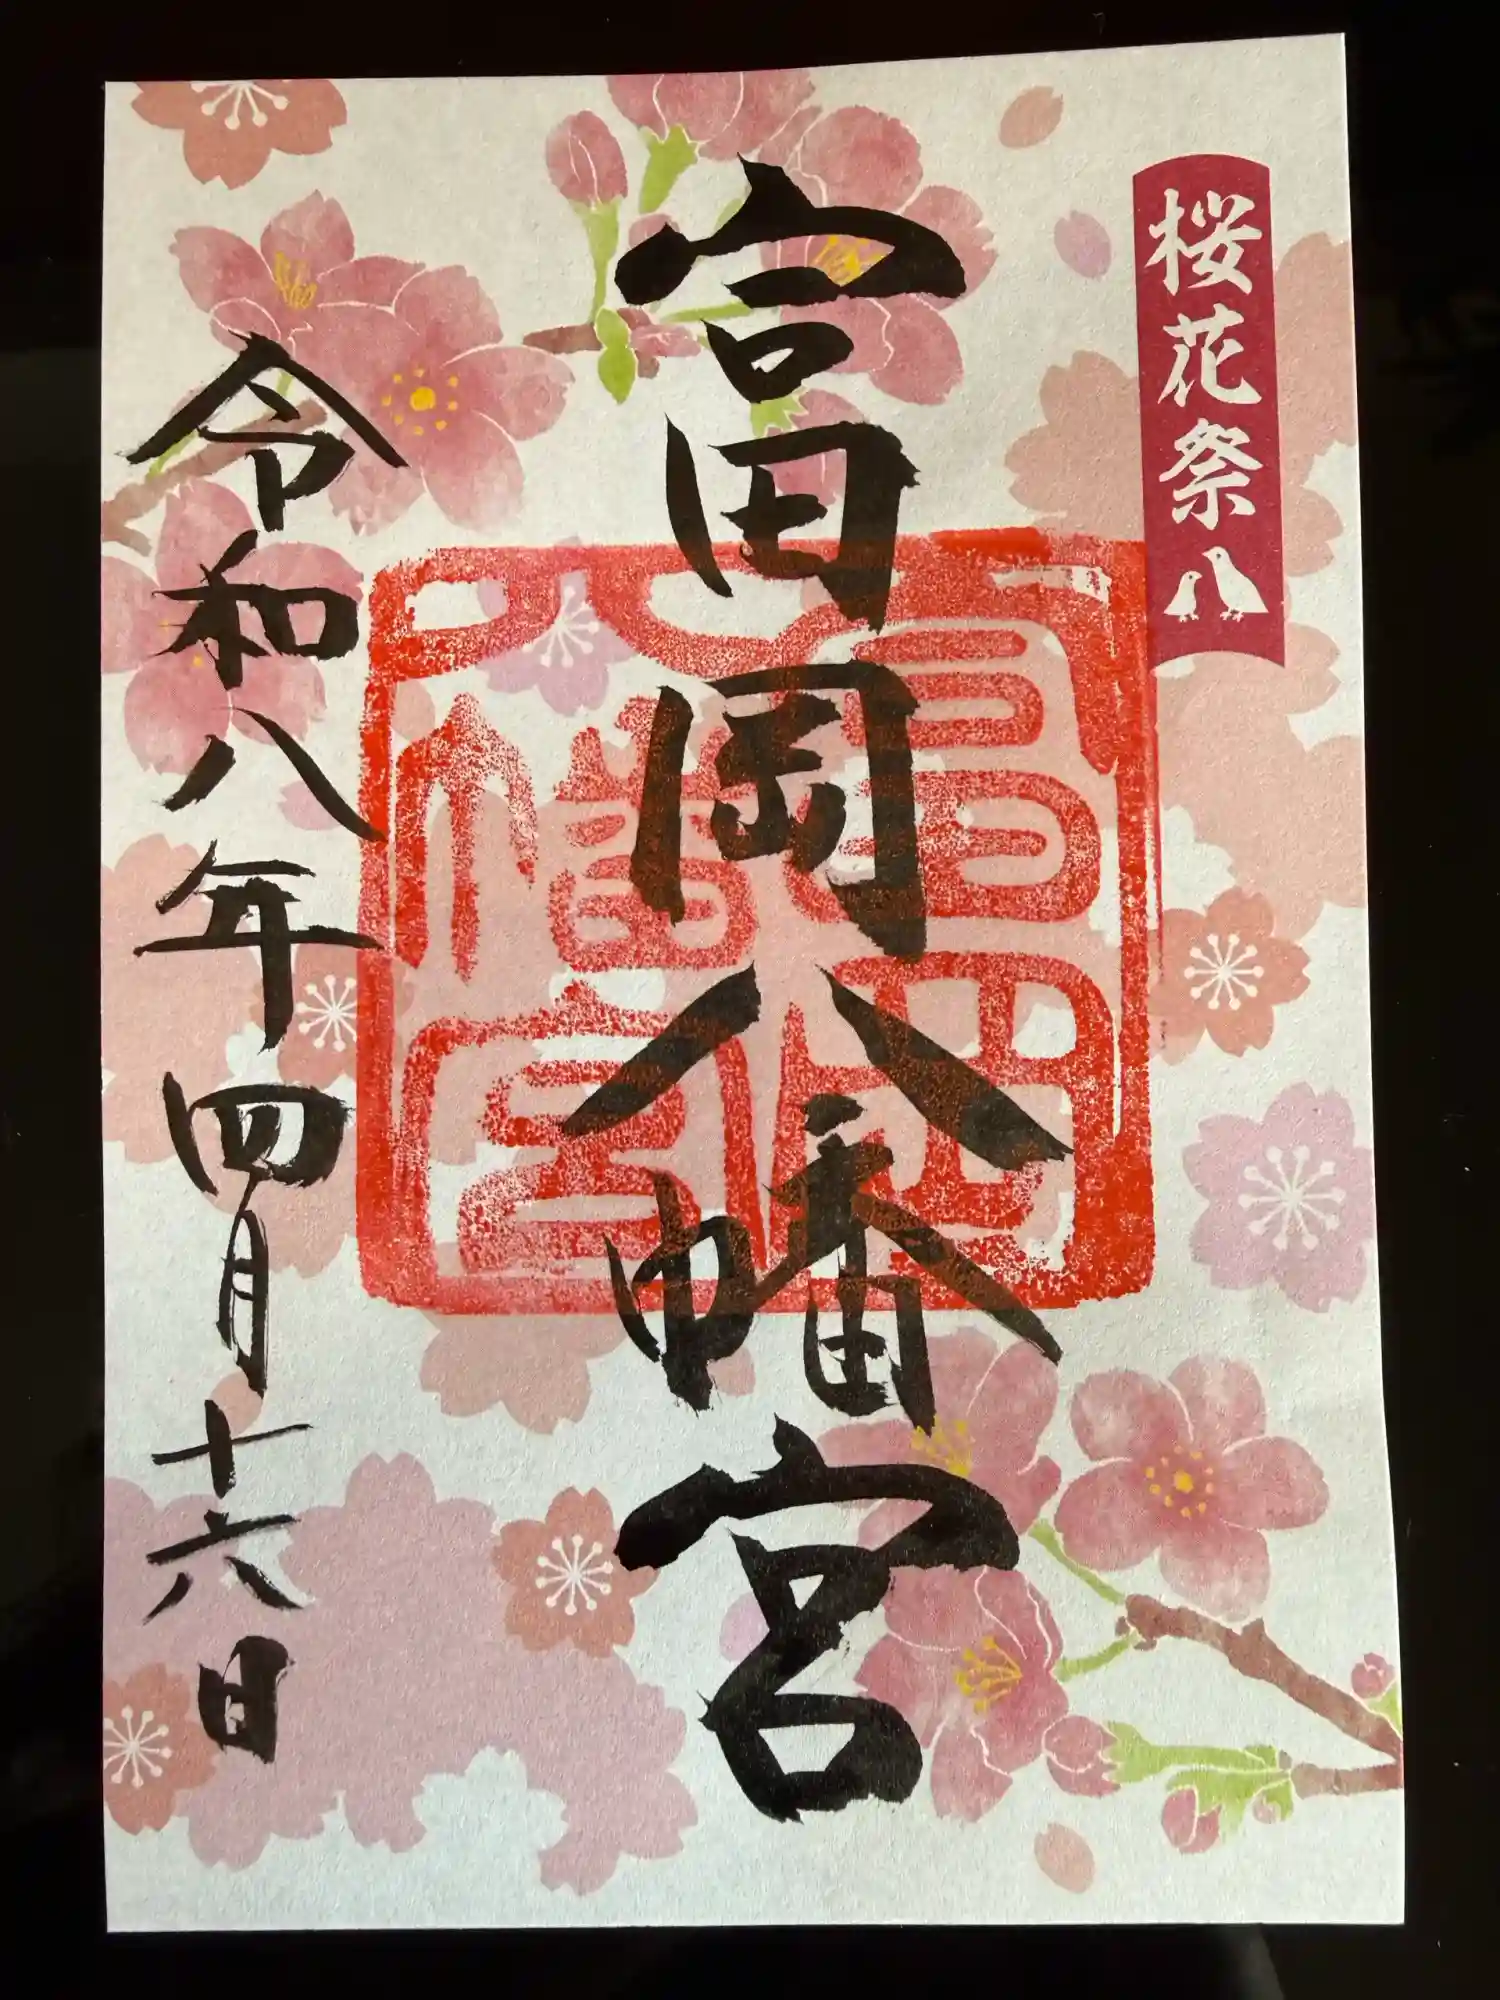 桜花祭
富岡八幡宮
富岡
八幡宮
令和八年四月十六日